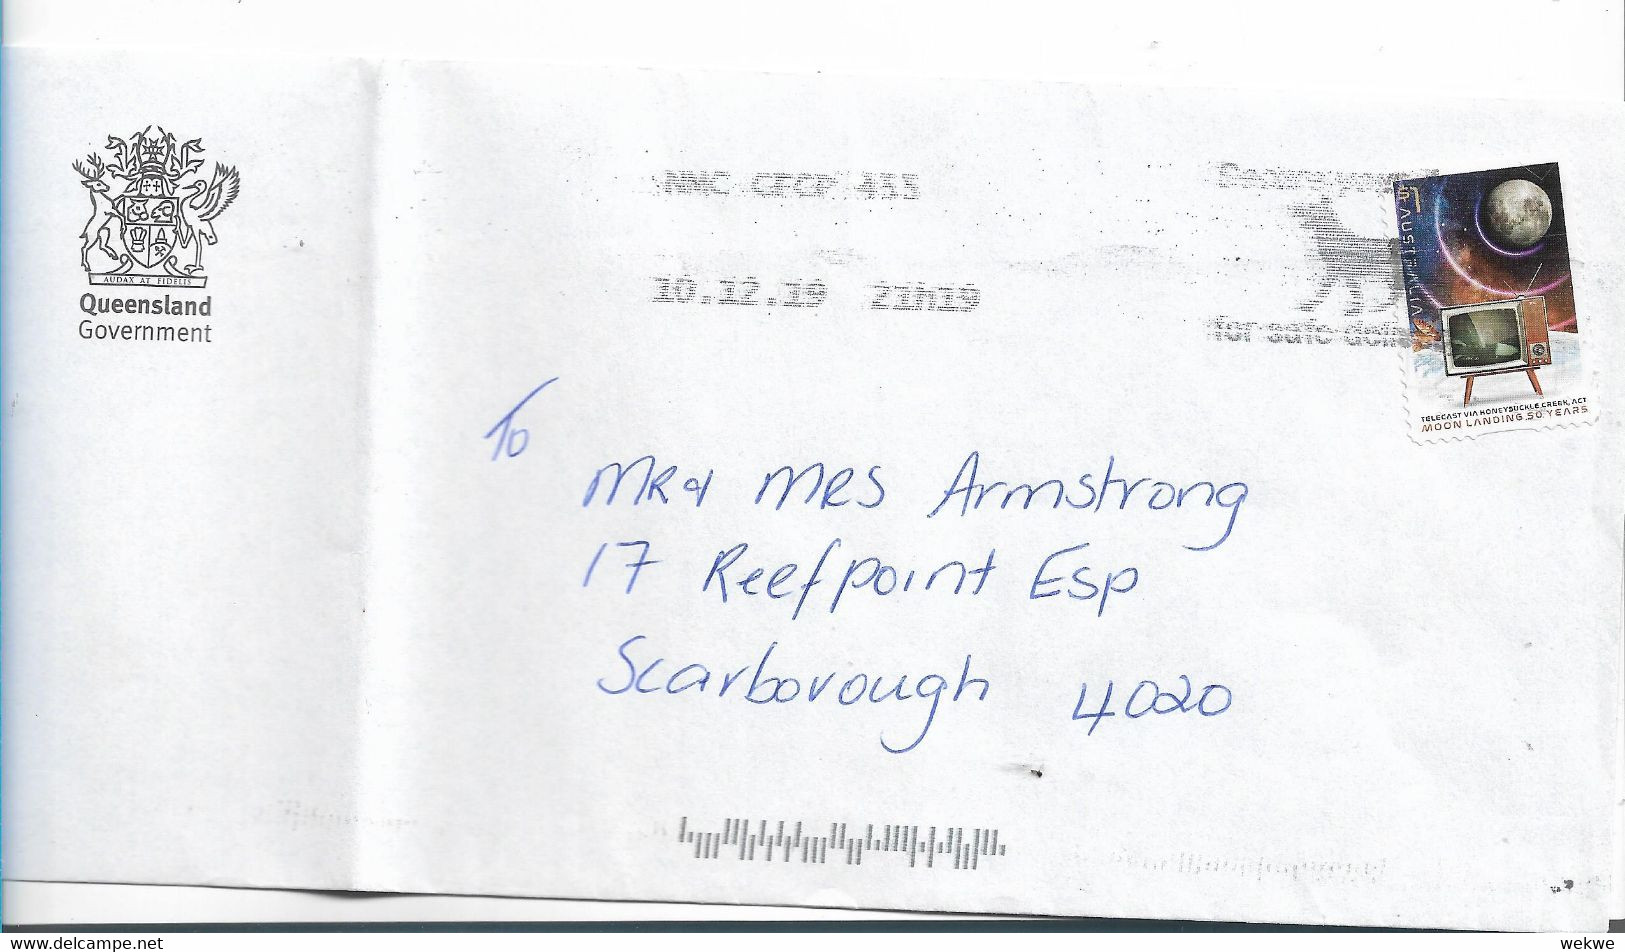 AUDAX AT FIDELIS
Queensland
Government
NMC CFCP 433
10.12.19 21h19
for safe
$1
AUSTRALIA
TELECAST VIA HONEYSUCKLE CREEK, ACT
MOON LANDING 50 YEARS
To
MR & MRS Armstrong
17 Reefpoint Esp
Scarborough 4020
www.delcampe.net
wekwe